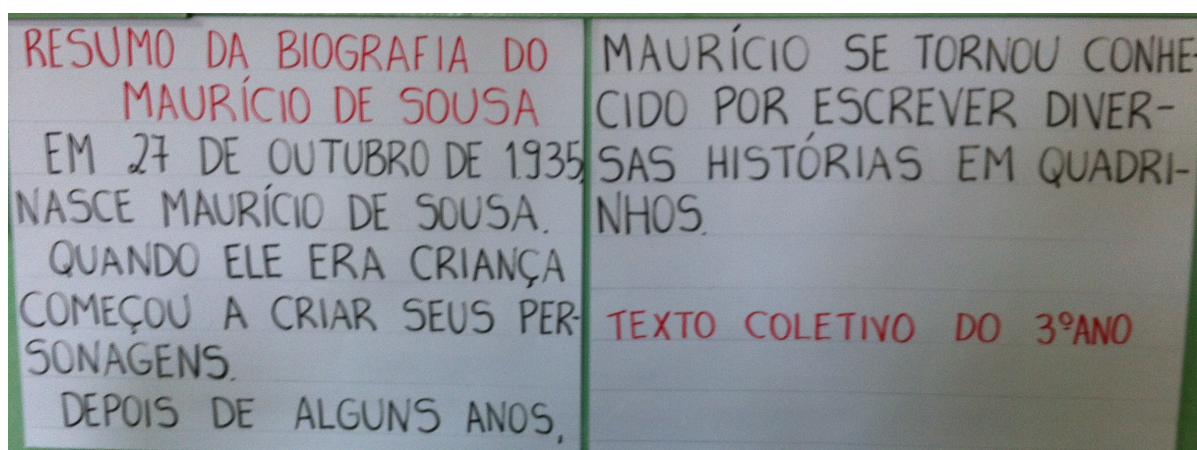 RESUMO DA BIOGRAFIA DO
MAURÍCIO DE SOUSA
EM 27 DE OUTUBRO DE 1935,
NASCE MAURÍCIO DE SOUSA.
QUANDO ELE ERA CRIANÇA
COMEÇOU A CRIAR SEUS PER-
SONAGENS.
DEPOIS DE ALGUNS ANOS,
MAURÍCIO SE TORNOU CONHE-
CIDO POR ESCREVER DIVER-
SAS HISTÓRIAS EM QUADRI-
NHOS.
TEXTO COLETIVO DO 3º ANO